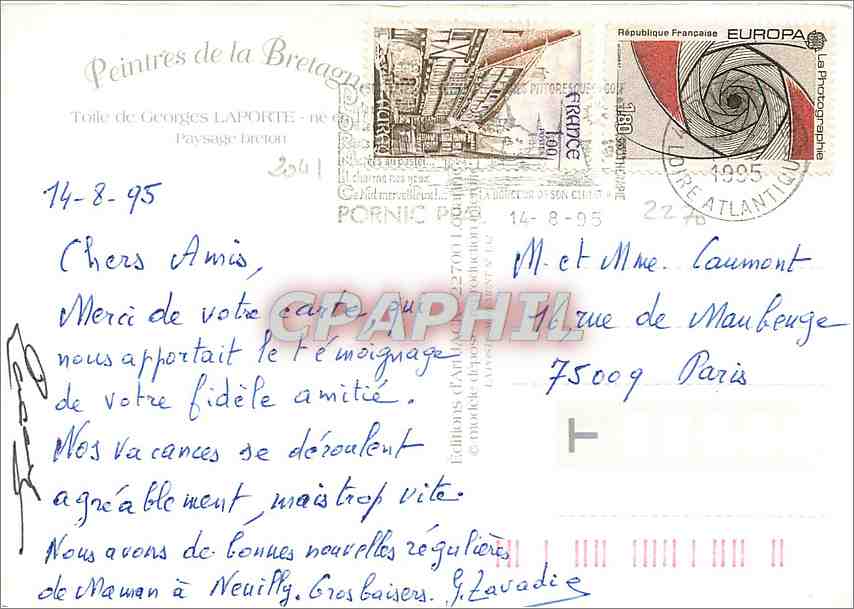 Peintres de la Bretagne
Toile de Georges LAPORTE - né en
Paysage breton
2041
14-8-95
Chers Amis,
Merci de votre carte, qui
nous apportait le témoignage
de votre fidèle amitié.
Nos vacances se déroulent
agréablement, mais trop vite.
Nous avons de bonnes nouvelles régulières
de Maman à Neuilly. Gros baisers. G. Zavadie
FRANCE
1,00
République Française
EUROPA
La Photographie
1,80
PORNIC
14- 8-95
1995
LOIRE ATLANTIQUE
2270
M. et Mme. Caumont
16, rue de Maubeuge
75009 Paris
T
Editions d'Art JACK 22700
© modèle déposé
CPAPHIL